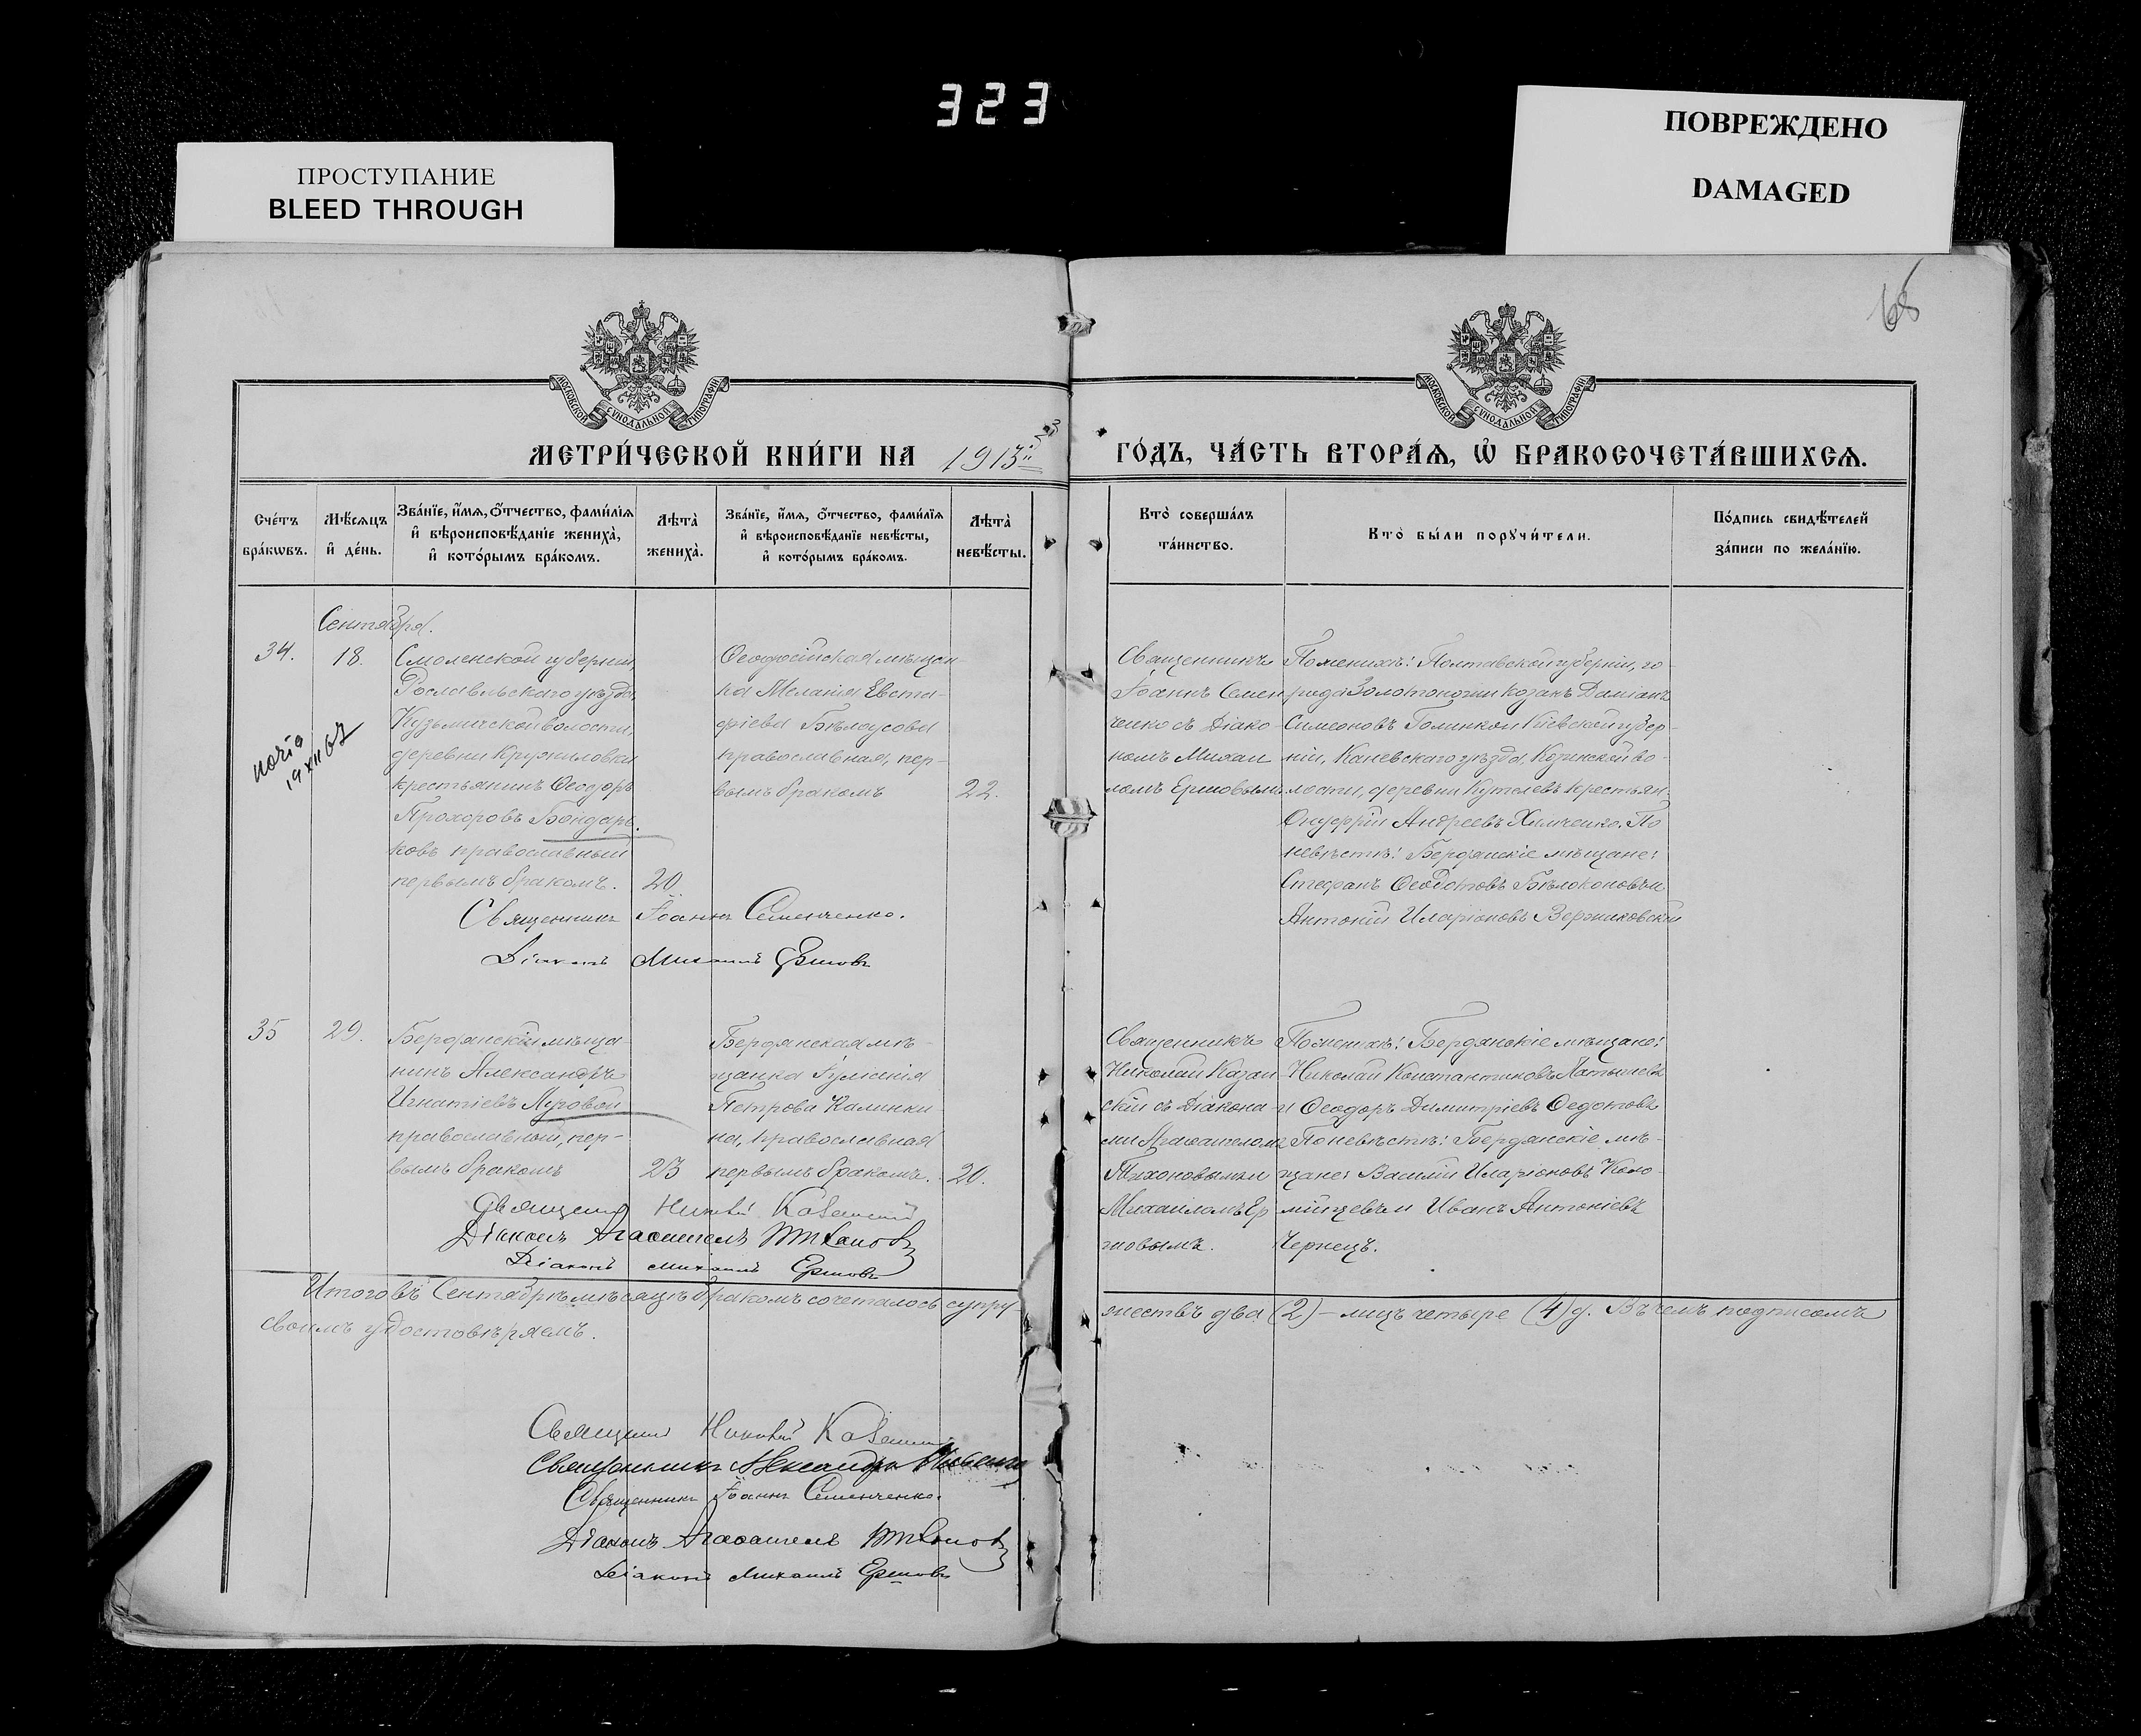 323
ПРОСТУПАНИЕ
BLEED THROUGH
ПОВРЕЖДЕНО
DAMAGED
68
МОСКОВСКОЙ СѴНОДАЛЬНОЙ ТИПОГРАФІИ
МОСКОВСКОЙ СѴНОДАЛЬНОЙ ТИПОГРАФІИ
МЕТРИ́ЧЕСКОЙ КНИ́ГИ НА 1913й
ГО́ДЪ, ЧА́СТЬ ВТОРА́Ѧ, Ѽ БРАКОСОЧЕТА́ВШИХСѦ.
Сче́тъ бра́кѡвъ.
Мѣ́сѧцъ и҆ де́нь.
Зва́нїе, и҆́мѧ, ѻ҆́тчество, фами́лїѧ и҆ вѣроисповѣ́данїе жениха̀, и҆ кото́рымъ бра́комъ.
Лѣ́та̀ жениха̀.
Зва́нїе, и҆́мѧ, ѻ҆́тчество, фами́лїѧ и҆ вѣроисповѣ́данїе невѣ́сты, и҆ кото́рымъ бра́комъ.
Лѣ́та̀ невѣ́сты.
Кто̀ соверша́лъ та́инство.
Кто̀ бы́ли порꙋчи́тели.
По́дпись свидѣ́телей за́писи по жела́нїю.
Сентября.
34.
18.
Смоленской губерніи,
Рославльскаго уѣзда,
Кузьмичской волости,
деревни Кружиловки
крестьянинъ Ѳеодоръ
Прохоровъ Бондарь-
ковъ православный
первымъ бракомъ.
20.
Ѳеодосійская мѣщан-
ка Меланія Евста-
фіева Бѣлоусова
православная, пер-
вымъ бракомъ
22.
Священникъ
Іоаннъ Семен
ченко съ Діако-
номъ Михаи
ломъ Ершовымъ
По женихѣ: Полтавской губерніи, го-
рода Золотоноши козакъ Даміанъ
Симеоновъ Голинко и Кіевской губер-
ніи, Каневскаго уѣзда, Козинской во-
лости, деревни Кутелевъ крестьян.
Онуфрій Андреевъ Химченко. По
невѣстѣ: Бердянскіе мѣщане:
Стефанъ Ѳеодотовъ Бѣлоконовъ и
Антоній Иларіоновъ Вержиковскій
19 XII 67
Священникъ Іоаннъ Семенченко.
Діаконъ Михаилъ Ершовъ
35
29.
Бердянскій мѣща-
нинъ Александръ
Игнатіевъ Муровой
православный, пер-
вымъ бракомъ
23
Бердянская мѣ-
щанка Іуліанія
Петрова Калинки
на, православная
первымъ бракомъ.
20.
Священникъ
Николай Казан
скій съ Діакона-
ми Агаѳангеломъ
Тихоновымъ и
Михаиломъ Ер
шовымъ.
По женихѣ: Бердянскіе мѣщане:
Николай Константиновъ Латышевъ
и Ѳеодоръ Димитріевъ Ѳедотовъ
По невѣстѣ: Бердянскіе мѣ-
щане: Василій Иларіоновъ Коло-
мійцевъ и Иванъ Антоніевъ
Чернецъ.
Священникъ Николай Казанскій
Діаконъ Агаѳангелъ Тихоновъ
Діаконъ Михаилъ Ершовъ
Итого въ Сентябрѣ мѣсяцѣ бракомъ сочеталось супру
жествъ два (2) – лицъ четыре (4) д. Въ чемъ подписомъ
своимъ удостовѣряемъ.
Священникъ Николай Казанскій
Священникъ Александръ
Священникъ Іоаннъ Семенченко.
Діаконъ Агаѳангелъ Тихоновъ
Діаконъ Михаилъ Ершовъ